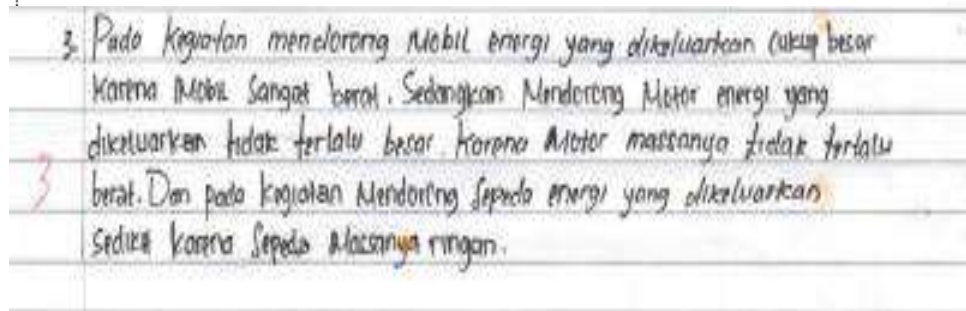 3. Pada kegiatan mendorong Mobil energi yang dikeluarkan cukup besar
karena Mobil sangat berat. Sedangkan Mendorong Motor energi yang
dikeluarkan tidak terlalu besar karena Motor massanya tidak terlalu
3 berat. Dan pada kegiatan Mendorong Sepeda energi yang dikeluarkan
sedikit karena Sepeda Massanya ringan.